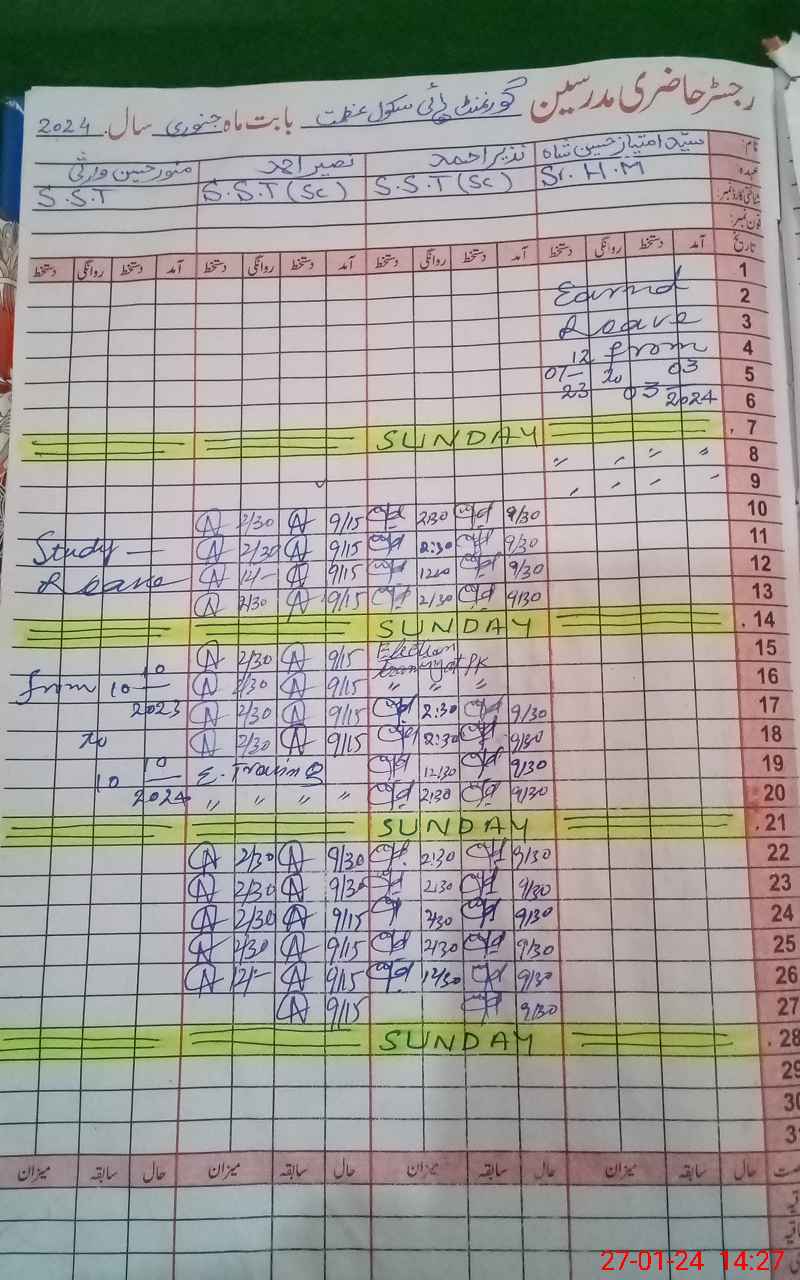 رجسٹر حاضری مدرسین گورنمنٹ ہائی سکول عظمت بابت ماہ جنوری سال 2024
نام: سید امتیاز حسین شاہ نذیر احمد نصیر احمد منور حسین وارثی
عہدہ: Sr. H.M S.S.T (Sc) S.S.T (Sc) S.S.T
شناختی کارڈ نمبر:
فون نمبر:
تاریخ آمد دستخط روانگی دستخط آمد دستخط روانگی دستخط آمد دستخط روانگی دستخط آمد دستخط روانگی دستخط
1
2 Earnd
3 Leave
4 from
5 01-12 20 03
6 23 03 2024
7 SUNDAY
8 " " " "
9 " " " "
10 9/30 2:30 9/15 2/30
11 9/30 2:30 9/15 2/30 Study
12 9/30 1200 9/15 12/- Leave
13 9/30 2/30 9/15 2/30
14 SUNDAY
15 Election 9/15 2/30
16 training at PK 9/15 2/30 from 10 10
17 9/30 2:30 9/15 2/30 2023
18 9/30 2:30 9/15 2/30 to
19 9/30 12/30 E. Training 10 10
20 9/30 2:30 " " " " 2024
21 SUNDAY
22 9/30 2:30 9/30 2/30
23 9/30 2:30 9/30 2/30
24 9/30 2/30 9/15 2/30
25 9/30 2/30 9/15 2/30
26 9/30 12/30 9/15 12/-
27 9/30 9/15
28 SUNDAY
29
30
31
حال سابقہ میزان حال سابقہ میزان حال سابقہ میزان حال سابقہ میزان
27-01-24 14:27